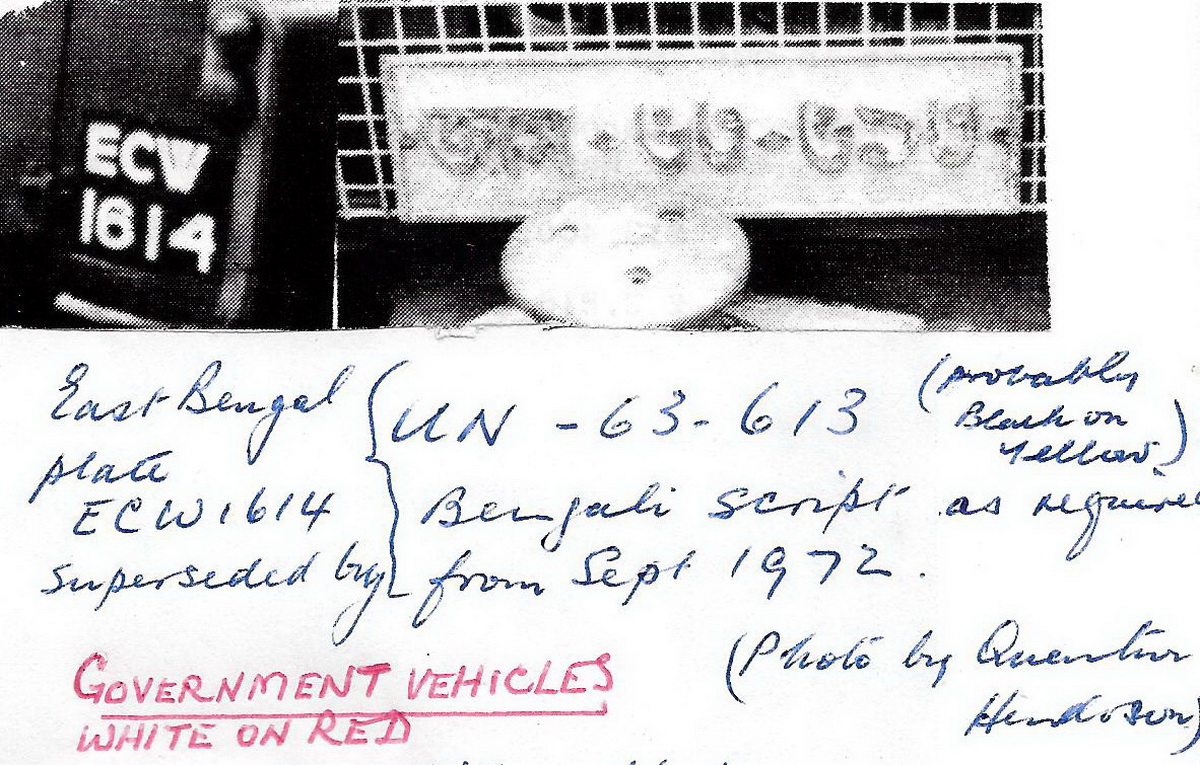 ECW
1614
৬৩-৬১৩
East Bengal
plate
ECW 1614
superseded by
UN - 63 - 613
(probably
Black on
Yellow)
Bengali script as require
from Sept 1972.
(Photo by Quentin
GOVERNMENT VEHICLES
WHITE ON RED